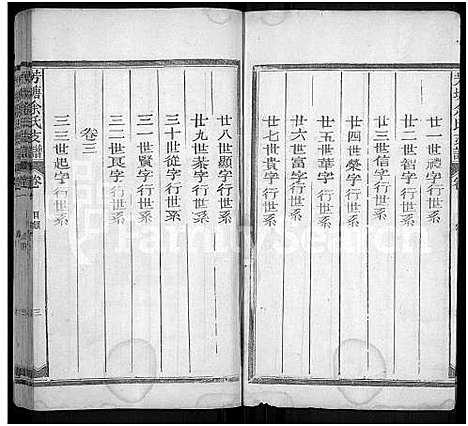 廿一世禮字行世系
廿二世智字行世系
廿三世信字行世系
廿四世榮字行世系
廿五世華字行世系
廿六世富字行世系
廿七世貴字行世系
廿八世顯字行世系
廿九世榮字行世系
三十世從字行世系
三一世賢字行世系
三二世良字行世系
卷三
三三世起字行世系
芳塘徐氏支譜
卷
目錄
三
FamilySearch